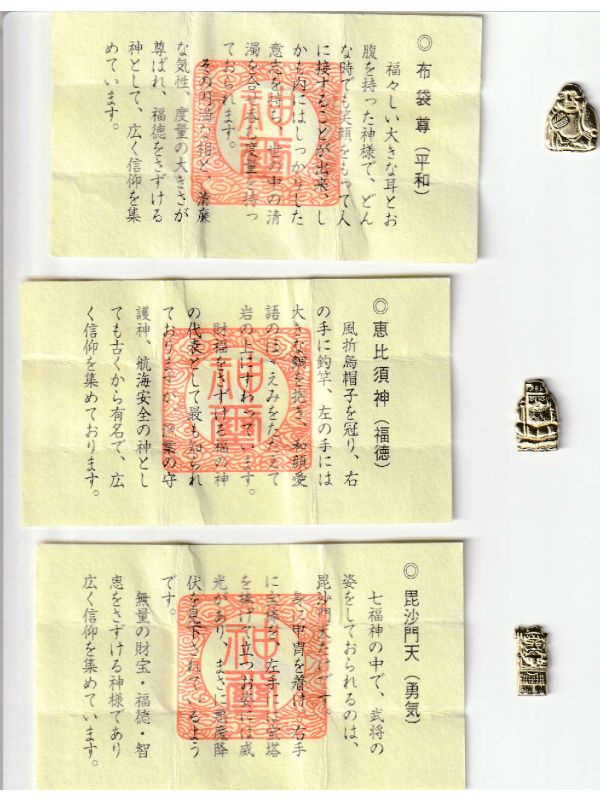 ◎ 布袋尊（平和）
福々しい大きな耳とお
腹を持った神様で、どん
な時でも笑顔をもって人
に接することが出来、し
かも内にはしっかりした
意志を持ち、世の中の清
濁を合せ呑む度量を持っ
ておられます。
その円満な相と、清廉
な気性、度量の大きさが
尊ばれ、福徳をさずける
神として、広く信仰を集
めています。
神璽
◎ 恵比須神（福徳）
風折烏帽子を冠り、右
の手に釣竿、左の手には
大きな鯛を抱き、和顔愛
語のほゝえみをたたえて
岩の上にすわっています。
財福をさずける福の神
の代表として最も知られ
ておりますが、漁業の守
護神、航海安全の神とし
ても古くから有名で、広
く信仰を集めております。
神璽
◎ 毘沙門天（勇気）
七福神の中で、武将の
姿をしておられるのは、
毘沙門天だけです。
身に甲冑を着け、右手
に宝棒を、左手には宝塔
を捧げて立つお姿には威
光があり、まさに悪魔降
伏を見下されているよう
です。
無量の財宝・福徳・智
恵をさずける神様であり
広く信仰を集めています。
神璽